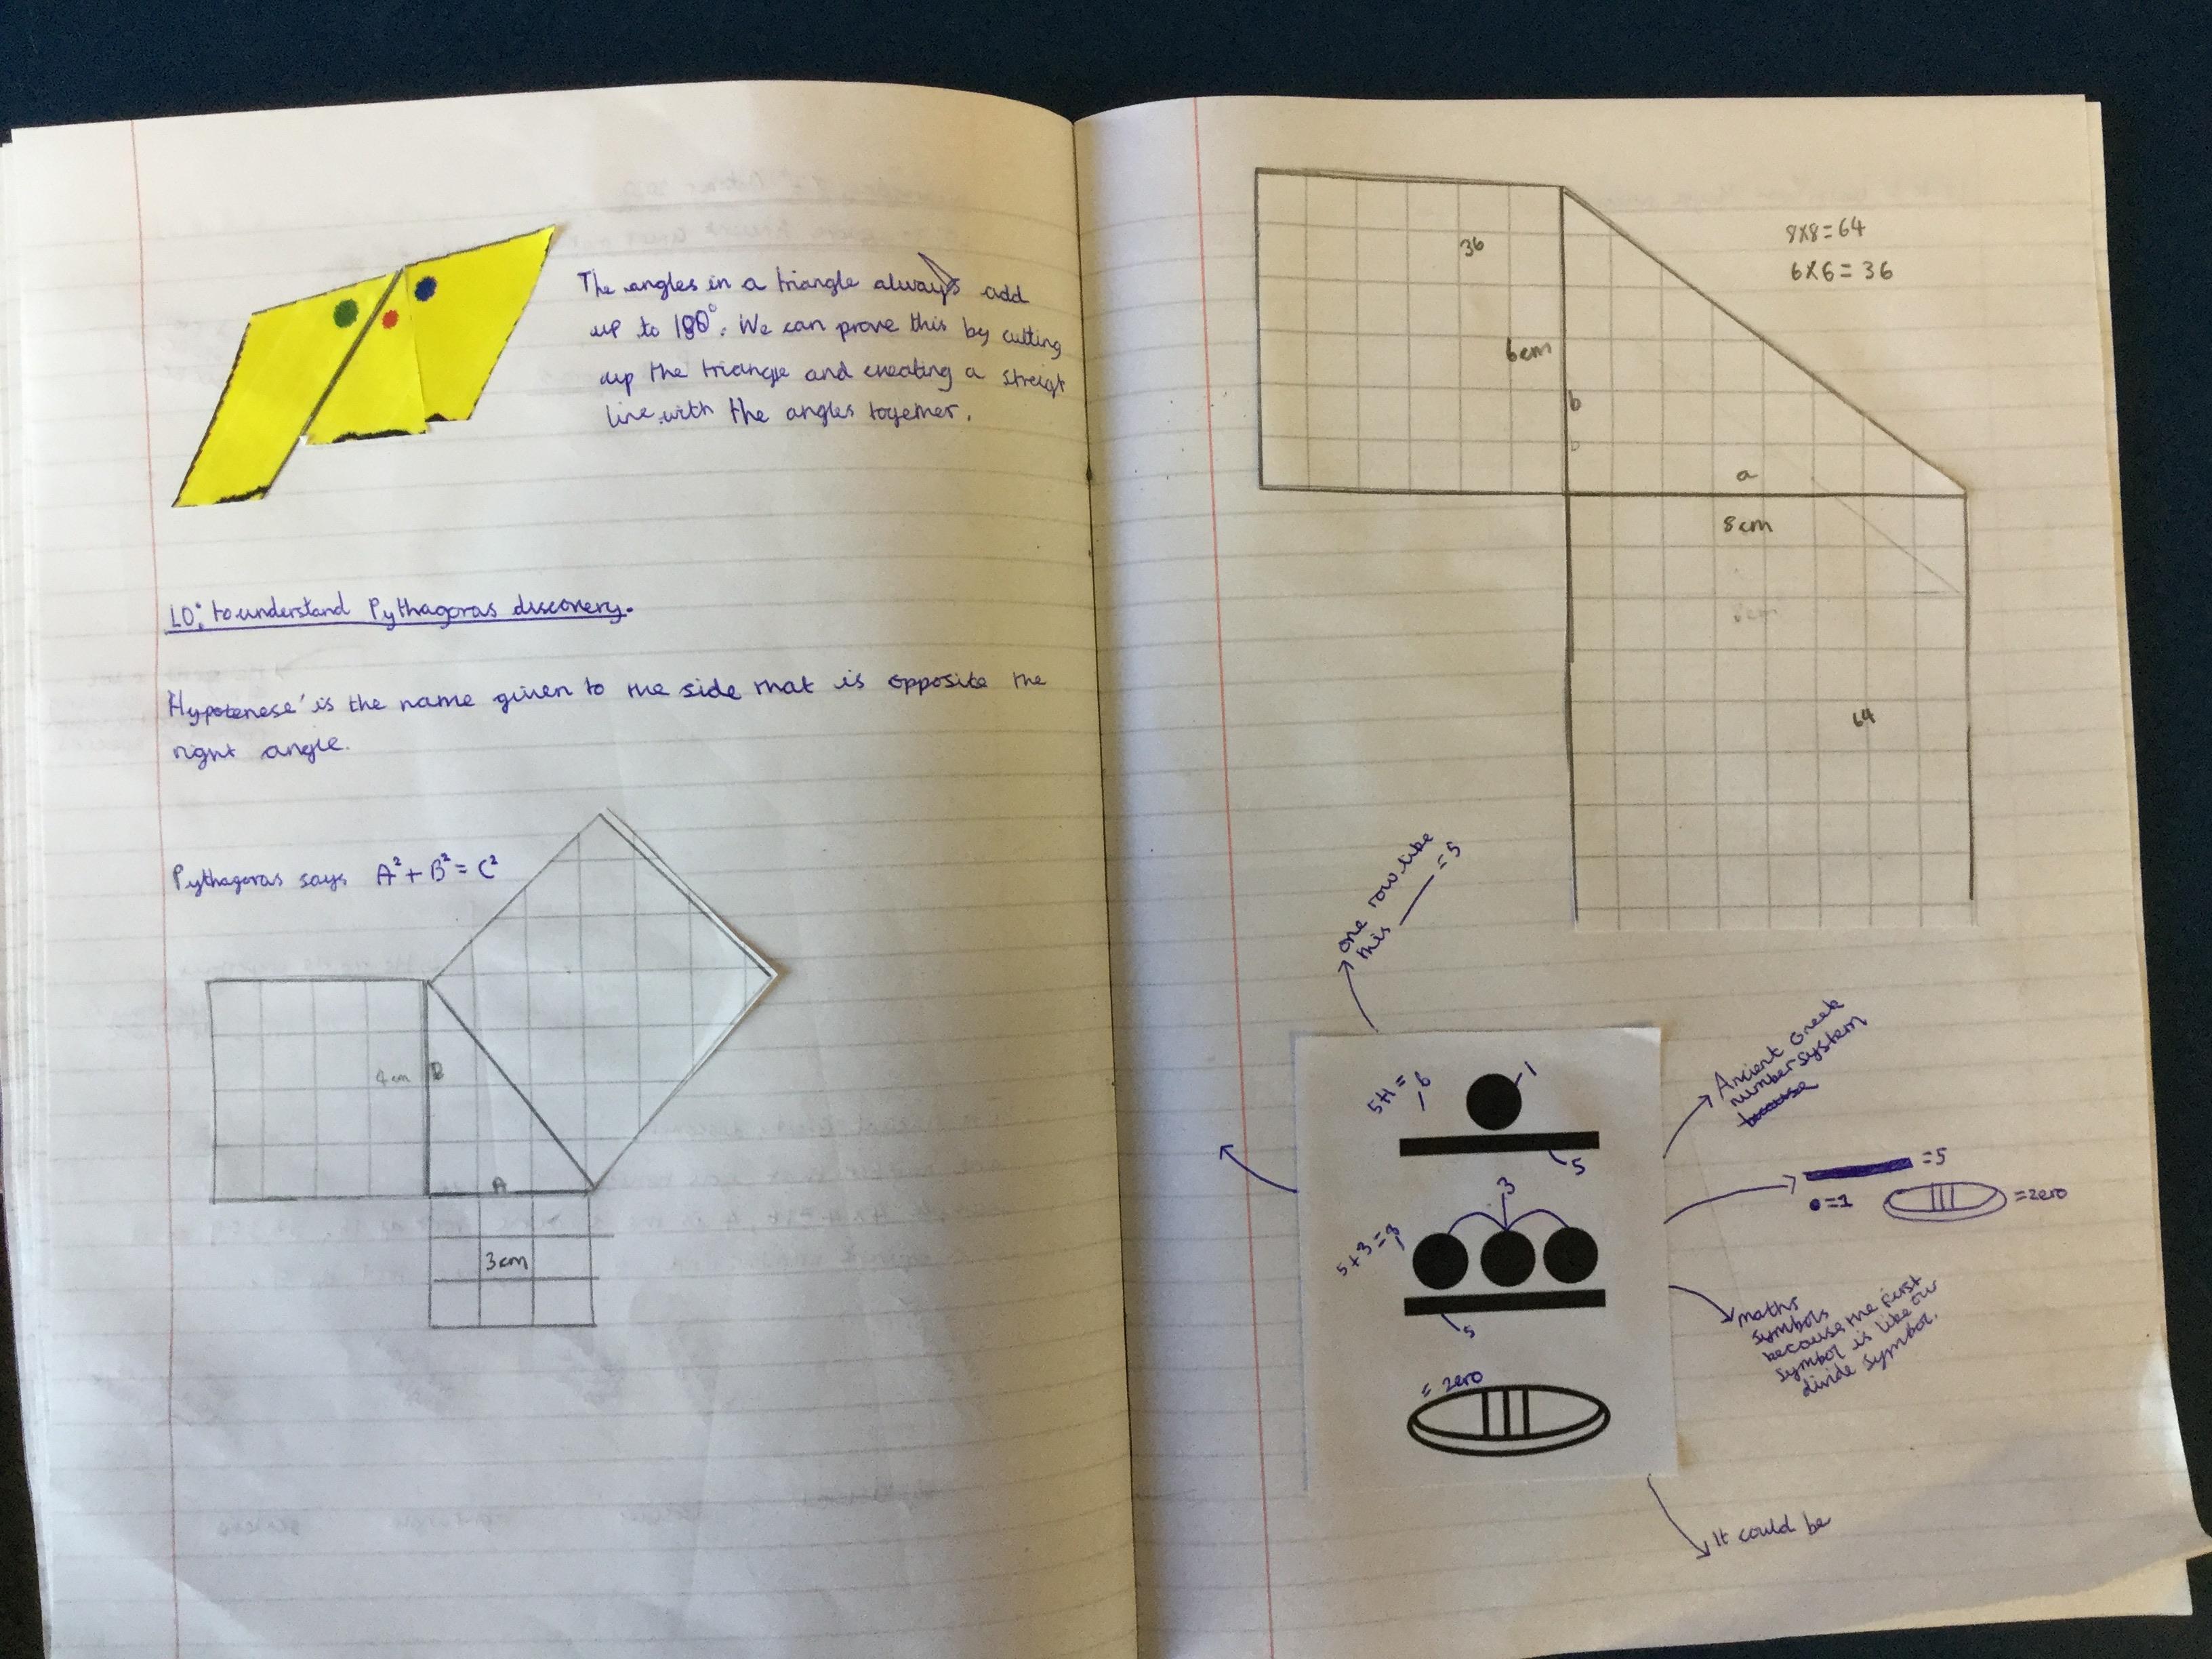 The angles in a triangle always add
up to 180°. We can prove this by cutting
up the triangle and creating a streigt
line with the angles together.
LO: to understand Pythagoras discovery.
Hypotenese' is the name given to the side that is opposite the
right angle.
Pythagoras says A² + B² = C²
4cm
B
A
3cm
36
8x8=64
6x6=36
6cm
b
a
8cm
64
one row like
this —— = 5
Ancient Greek
number system
because
5+1=6
1
5
3
5+3=8
5
= zero
= 5
• = 1
= zero
maths
symbols
because the first
symbol is like our
divide symbol.
It could be